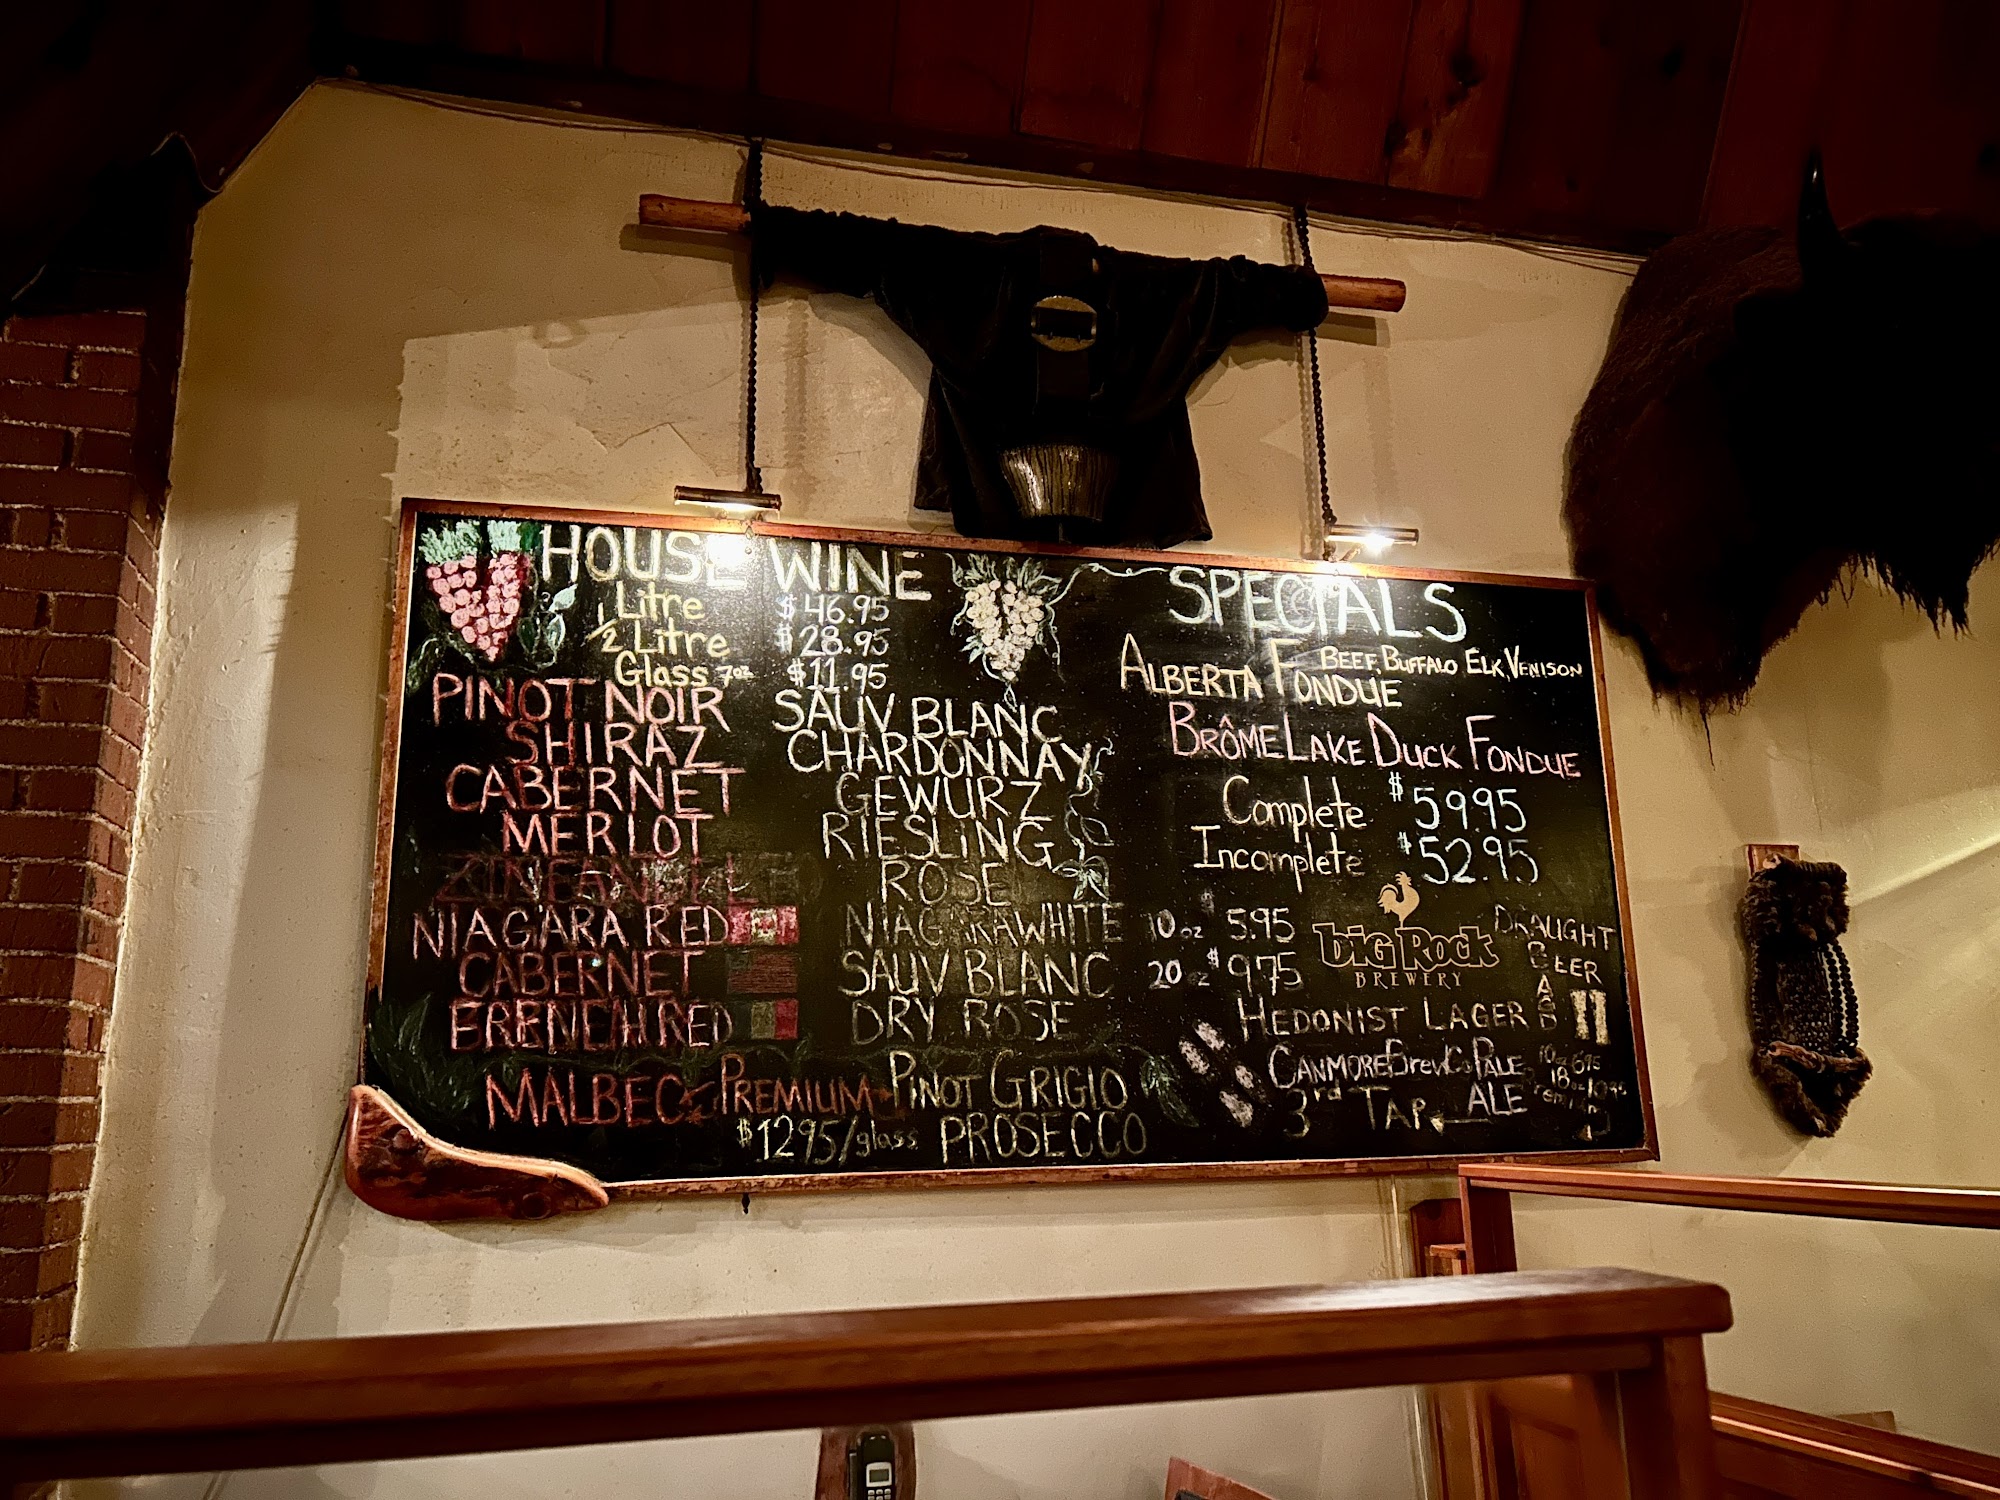 HOUSE WINE
1 Litre $46.95
1/2 Litre $28.95
Glass 7oz $11.95
PINOT NOIR
SHIRAZ
CABERNET
MERLOT
NIAGARA RED
CABERNET
FRENCH RED
SAUV BLANC
CHARDONNAY
GEWURZ
RIESLING
ROSE
NIAGARA WHITE
SAUV BLANC
DRY ROSE
MALBEC PREMIUM PINOT GRIGIO
$12.95/glass PROSECCO
SPECIALS
ALBERTA FONDUE BEEF, BUFFALO ELK, VENISON
BRÔME LAKE DUCK FONDUE
Complete $59.95
Incomplete $52.95
10 oz $5.95
20 oz $9.75
BIG ROCK
BREWERY
DRAUGHT
BEER
HEDONIST LAGER
CANMORE Brew Co PALE
ALE
3rd TAP